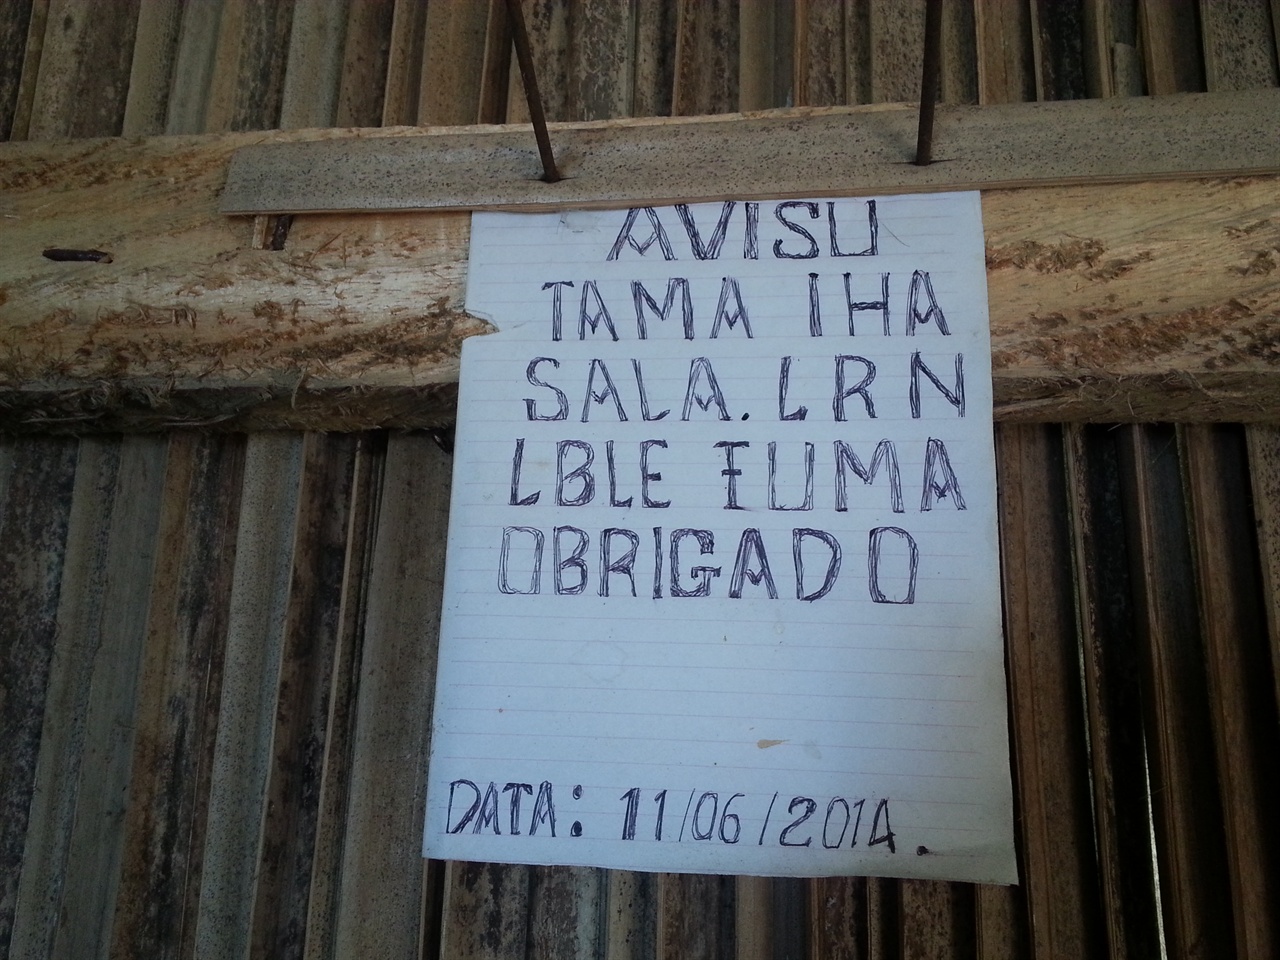 AVISU
TAMA IHA
SALA. LRN
LBLE FUMA
OBRIGADO
DATA: 11/06/2014.